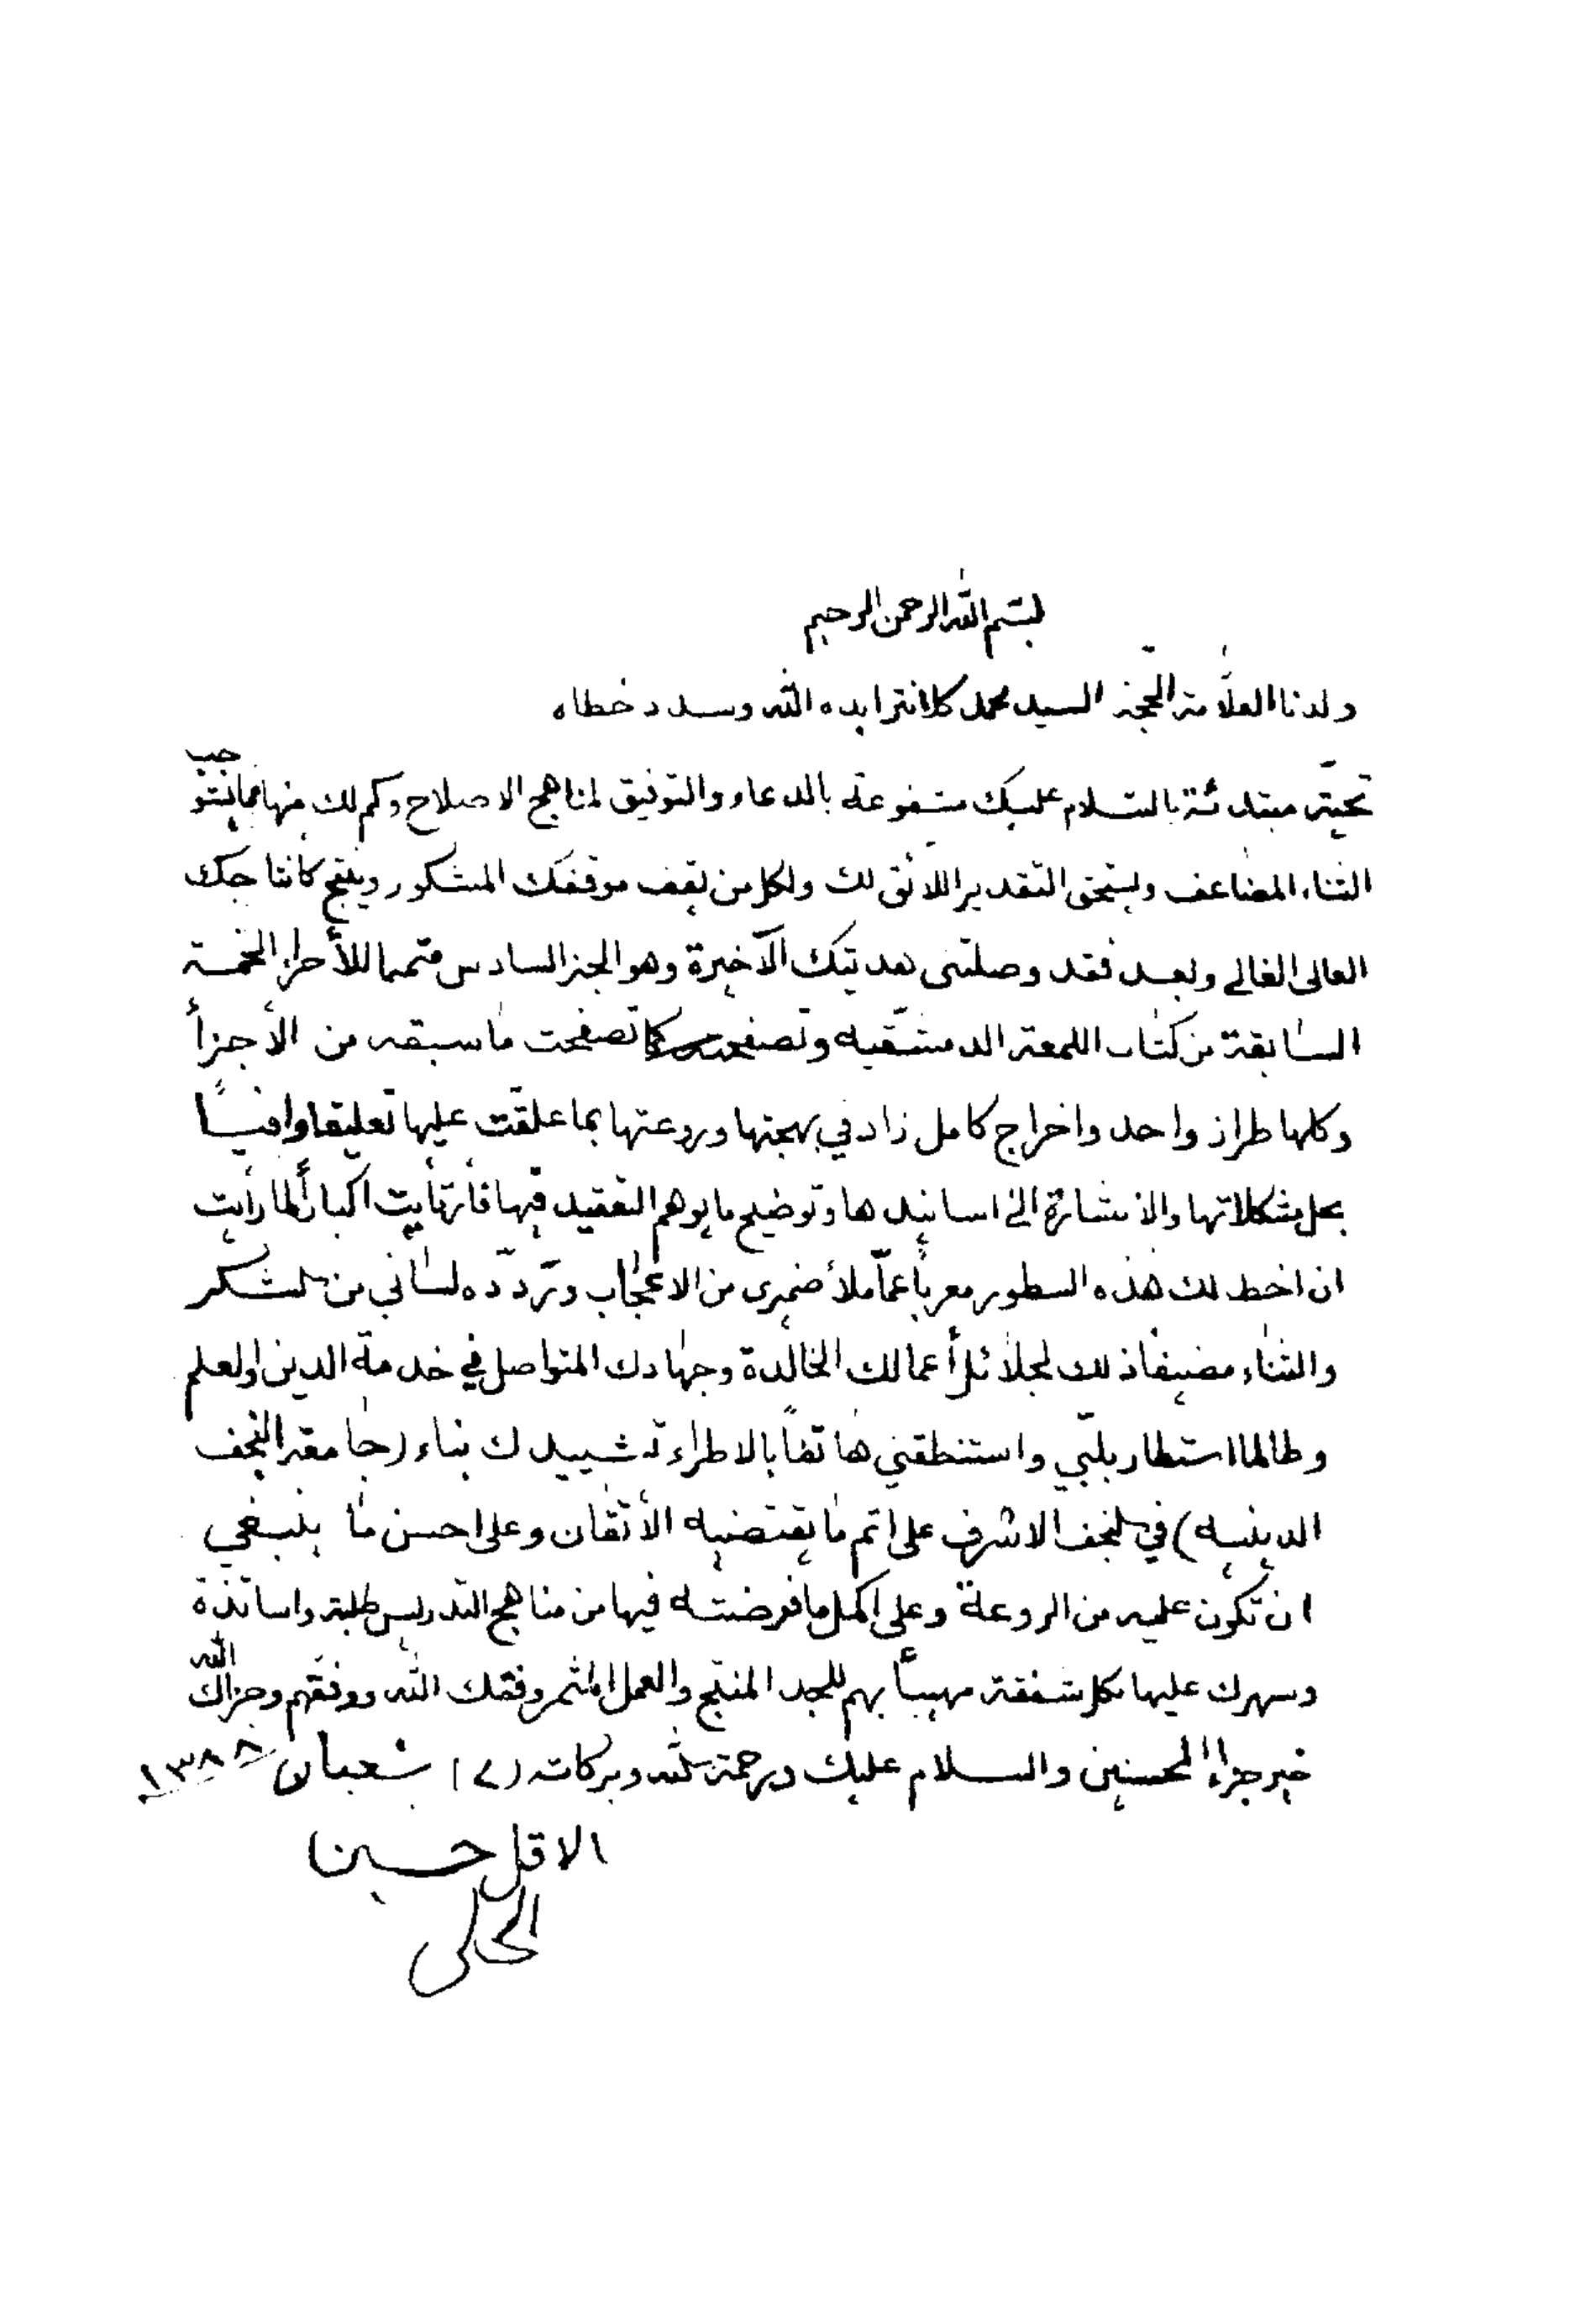 بسم الله الرحمن الرحيم
ولدنا العلّامة الحجّة السيد محمد كلانتر ايده الله وسدد خطاه
تحيّة مبتدئة بالسلام عليك مشفوعة بالدعاء والتوفيق لمناهج الاصلاح وكم لك منها مما يستوجب
الثناء المضاعف ويستحق التقدير اللائق لك ولكل من يقف موقفك المشكور وينتج كانتاجك
العالي الغالي وبعد فقد وصلتني هديتك الأخيرة وهو الجزء السادس متمما للأجزاء الخمسة
السابقة من كتاب اللمعة الدمشقيه وتصفحته كما تصفحت ما سبقه من الأجزأ
وكلها طراز واحد واخراج كامل زاد في بهجتها وروعتها بما علقت عليها تعليقا وافيـاً
بحل مشكلاتها والأشارة الى اسانيدها وتوضيح ما يوهم التعقيد فيها فأرتأيت اكباراً لما رأيت
ان اخط لك هذه السطور معرباً عمّا ملأ ضميري من الاعجاب وتردّده لساني من الشكر
والثناء مضيفا ذلك لجلائل أعمالك الخالدة وجهادك المتواصل في خدمة الدين والعلم
وطالما استطار بلبّي واستنطقني هاتفاً بالاطراء تشييدك بناء (جامعة النجف
الدينيه) في النجف الاشرف على اتم ما يقتضيه الأتقان وعلى احسن ما ينبغي
ان تكون عليه من الروعة وعلى اكمل ما فرضته فيها من مناهج التدريس لطلبة واساتذة
وسهرك عليها بكل شفقة مهيباً بهم للجد المنتج والعمل المثمر وفقك الله ووفقهم وجزاك الله
خير جزاء المحسنين والسلام عليك ورحمة الله وبركاته (٧) شعبان ١٣٨٨
الاقل حسين
الحلي